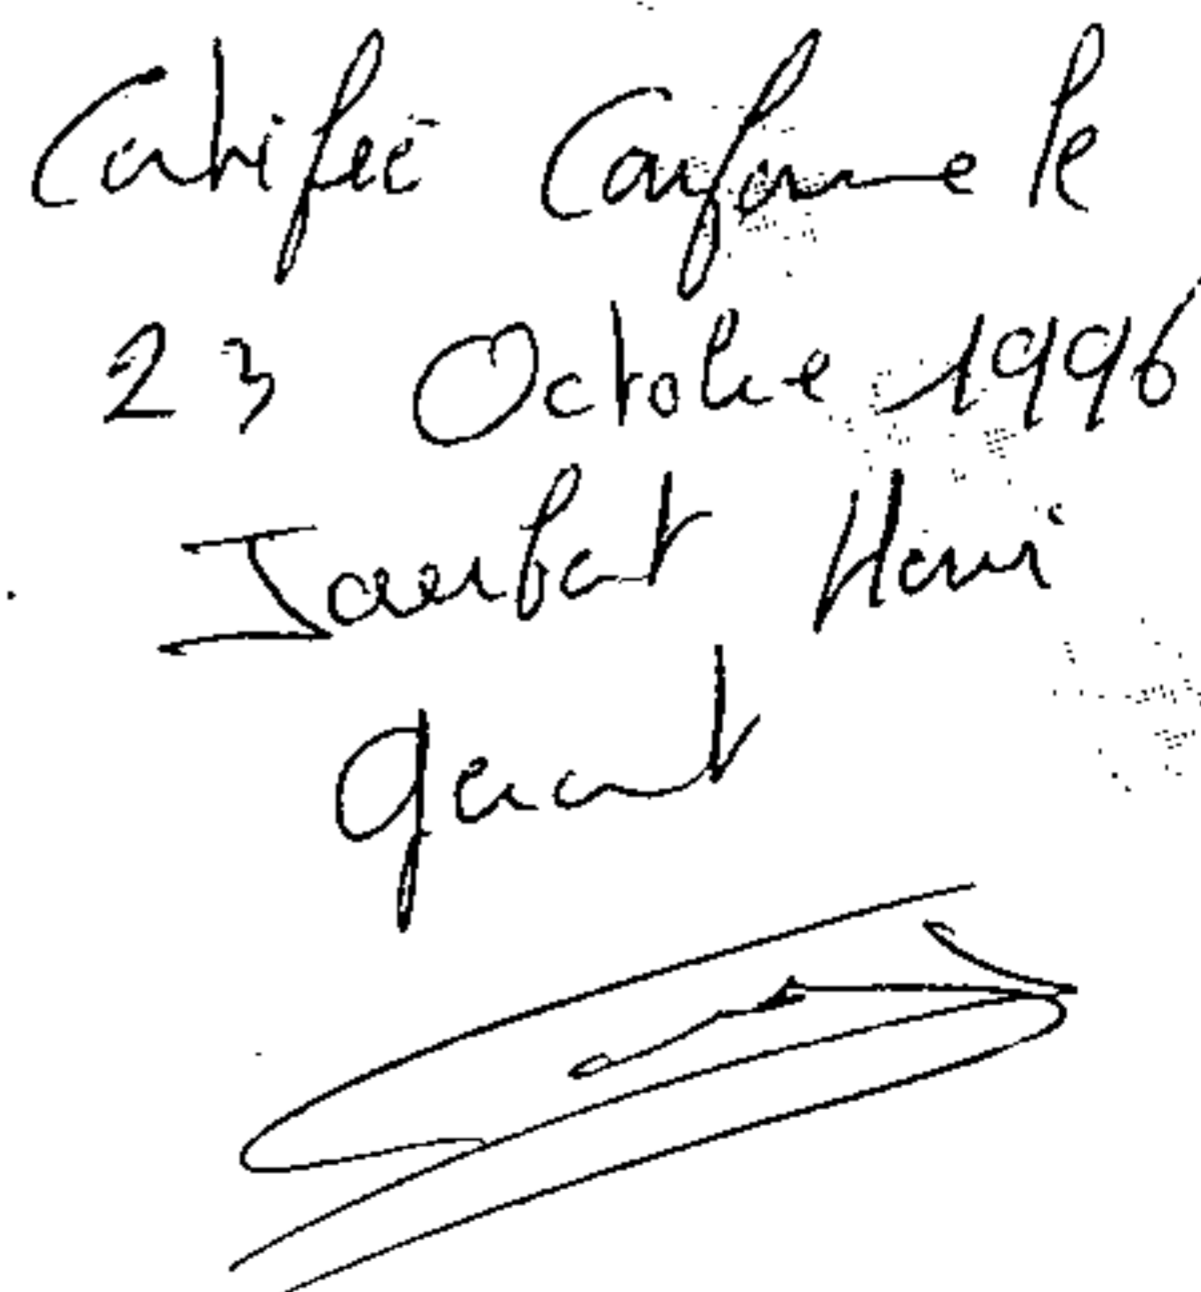 Certifiée Conforme le
23 Octobre 1996
Henri
gérant